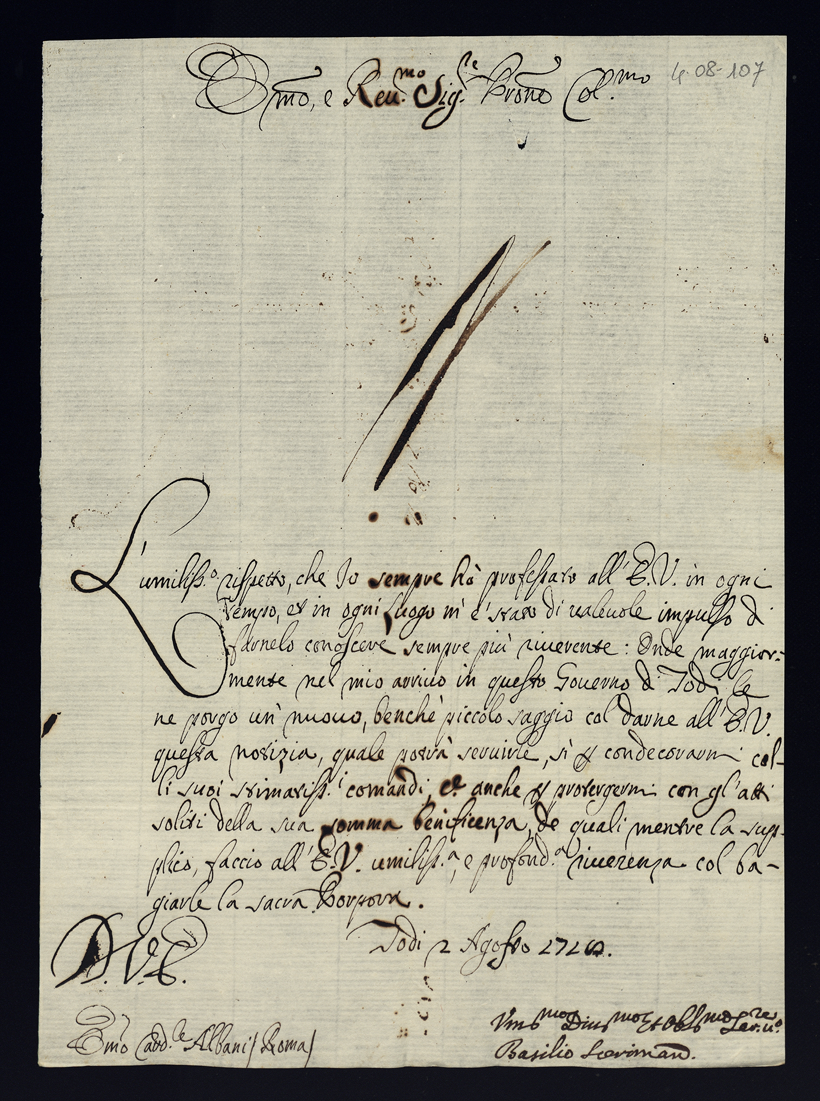 Emo, e Reu.mo Sig.re Prone Col.mo
4-08-107
L'umiliss.o rispetto, che Io sempre hò professato all'E.V. in ogni
tempo, et in ogni luogo m'e' stato di valeuole impulso di
farnelo conoscere sempre più riuerente: Onde maggior-
mente nel mio arriuo in questo Gouerno di Todi le
ne porgo un' nuouo, benche piccolo saggio col darne all'E.V.
questa notizia, quale potrà seruirle, sì p condecorarmi col-
li suoi stimatiss.i comandi, et anche p protegermi con gl'atti
soliti della sua somma benificenza, de quali mentre la sup-
plico, faccio all'E.V. umiliss.a, e profond.a riuerenza col ba-
giarle la sacra Porpora.
D.V.E.
Todi 2 Agosto
Emo Card.le Albani / Roma /
Vmo Diumo et Obbmo Ser.re
Basilio